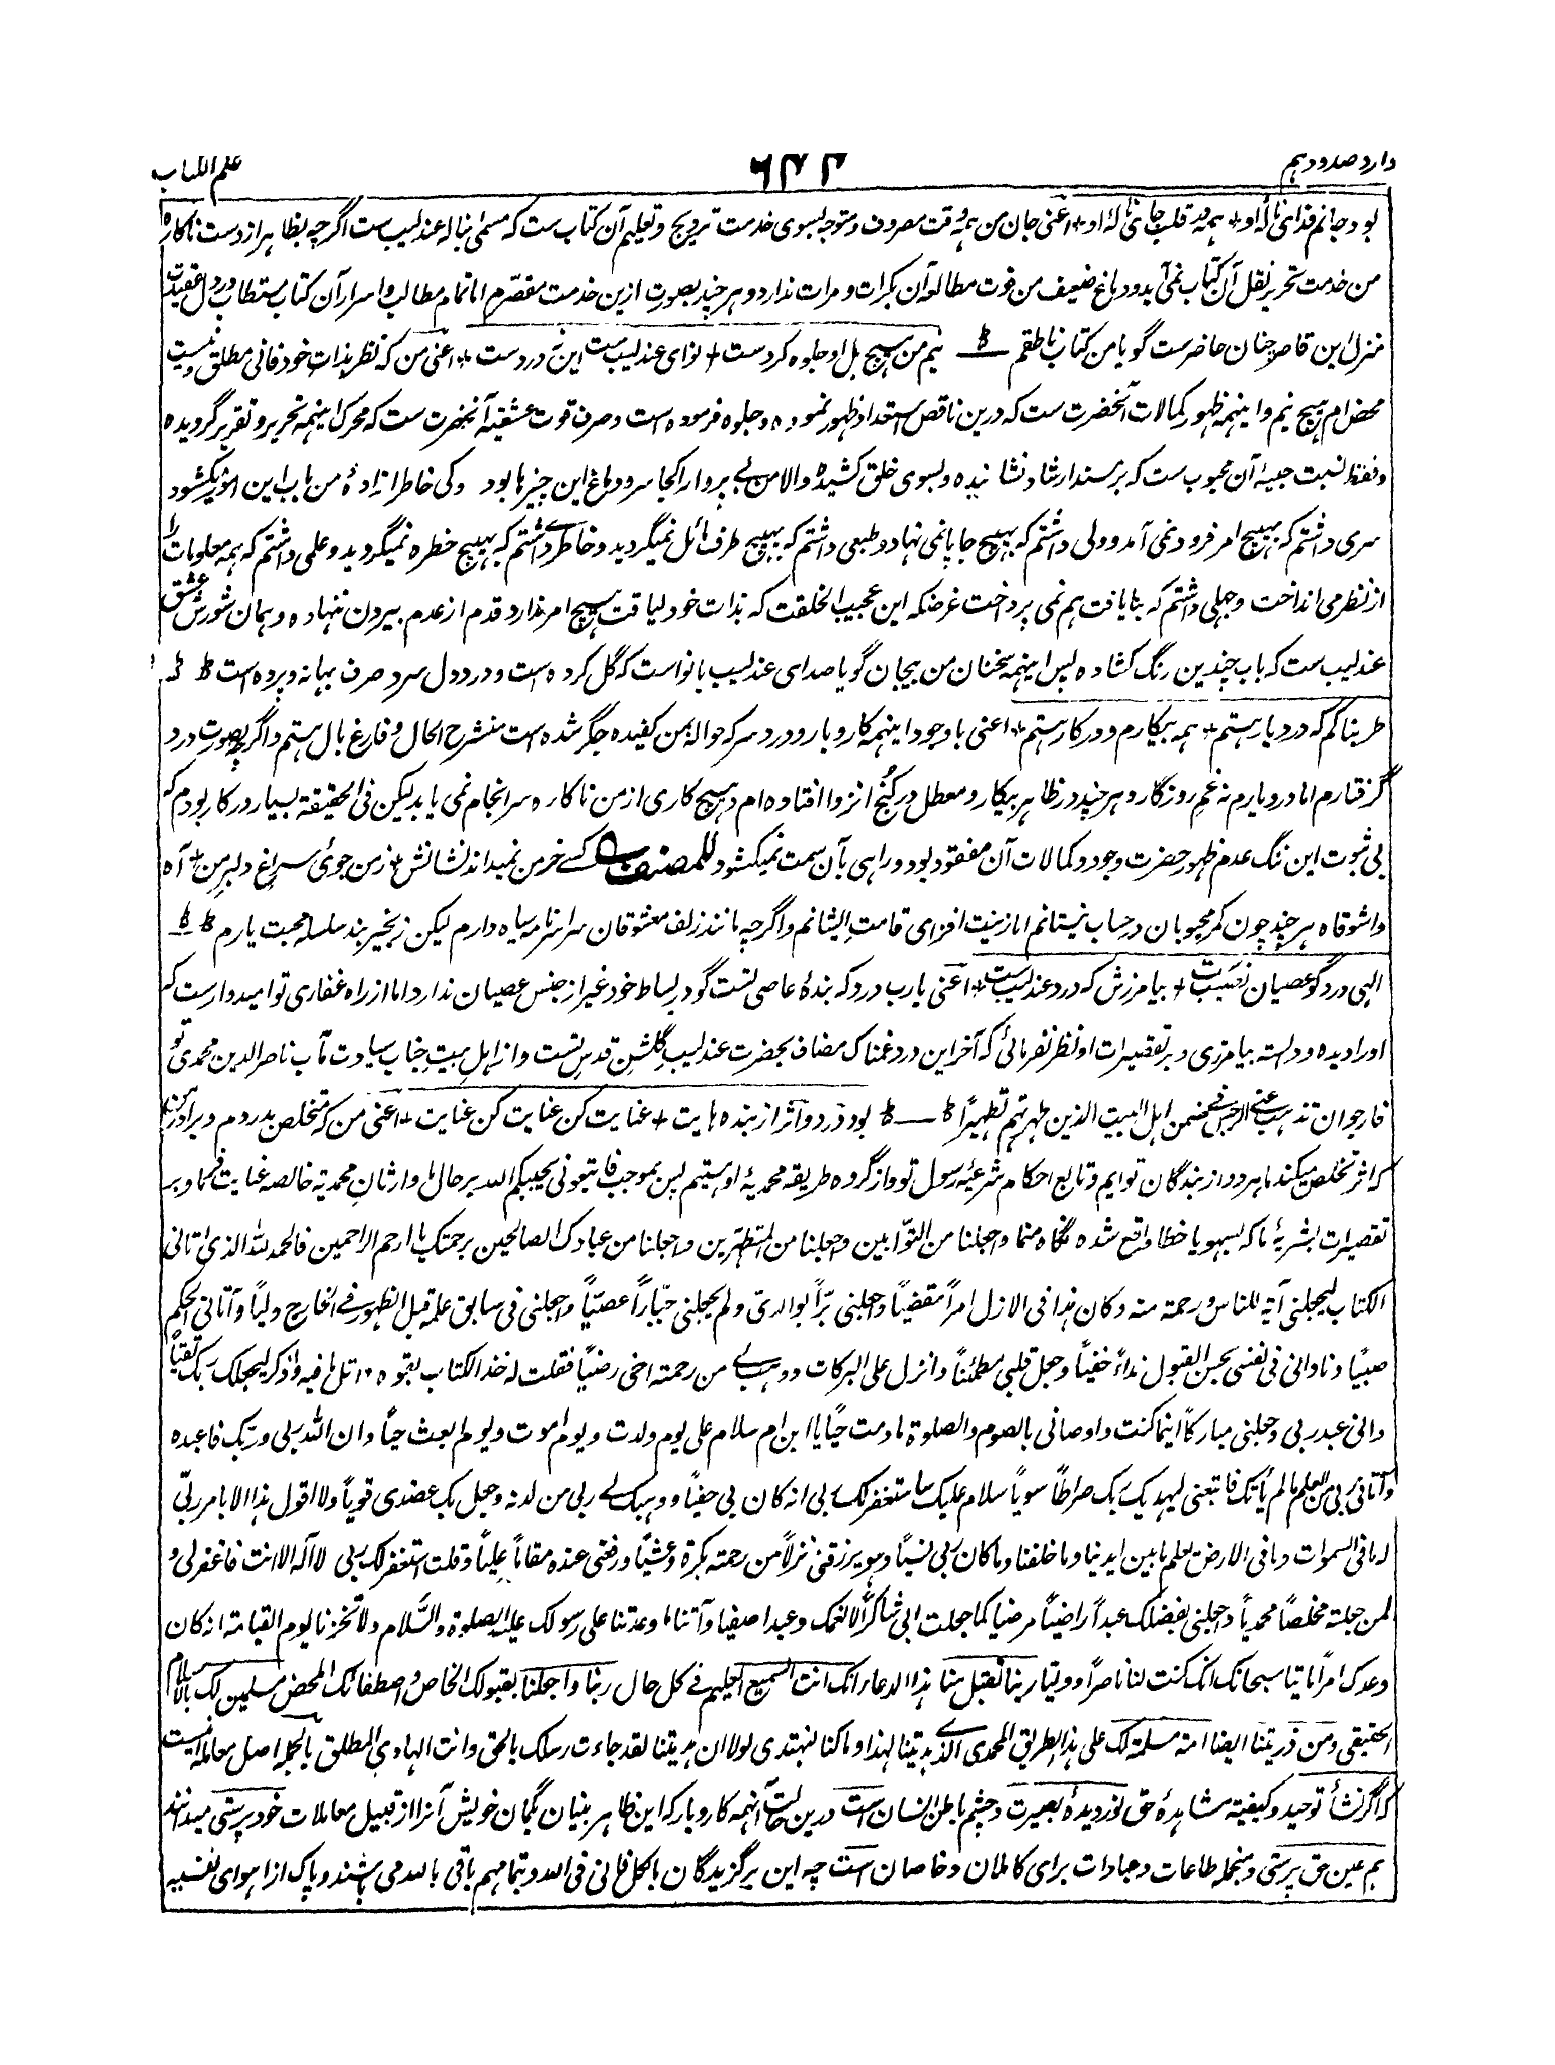 وارد صد و دہم ۶۴۲ علم الکتاب
بود جانم فدای نالۂ او + ہمہ قلب جای نالۂ او + اعنی جان من ہمہ وقت مصروف و متوجہ بسوی خدمت ترویج و تعلیم آن کتاب ست کہ مسمی بنالہ عندلیب ست اگرچہ بظاہر از دست ناکارہ
من خدمت تحریر نقل آن کتاب نمی آید و دماغ ضعیف من قوت مطالعہ آن بکرات و مرات ندارد و ہرچند بصورت ازین خدمت مقصرم اما تمام مطالب و اسرار آن کتاب مستطاب در دل عقیدت
منزل این قاصر چنان حاضرست گویا من کتاب ناطقم ط نیم من ہیچ بل او جلوہ کردست + نوای عندلیب ست این نہ دردست + اعنی من کہ نظر بذات خود فانی مطلق و نیست
محض ام ہیچ نیم و اینہمہ ظہور کمالات آنحضرت ست کہ درین ناقص استعداد ظہور نمودہ و جلوہ فرمودہ است و صرف قوت عشقیہ آنحضرت ست کہ محرک اینہمہ تحریر و تقریر گردیدہ
و فقط نسبت حبیہ آن محبوب ست کہ بر مسند ارشاد نشانیدہ و بسوی خلق کشیدہ والا من بے پروا را کجا سر و دماغ این چیزہا بود و کی خاطر آزادۂ من باب این امور میکشود
سری داشتم کہ بہیچ امر فرود نمی آمد و دلی داشتم کہ بہیچ جا پا نمی نہاد و طبعی داشتم کہ بہیچ طرف مائل نمیگردید و خاطرے داشتم کہ بہیچ خطرہ نمیگردید و علمی داشتم کہ ہمہ معلومات را
از نظر می انداخت و جہلی داشتم کہ بنایافت ہم نمی پرداخت غرضکہ این عجیب الخلقت کہ بذات خود لیاقت ہیچ امر ندارد قدم از عدم بیرون ننہادہ و ہمان شورش عشق
عندلیب ست کہ باب چندین رنگ کشادہ پس اینہمہ سخنان من بیجان گویا صدای عندلیب بانواست کہ گل کردہ است و درد دل سرد صرف بہانہ و پردہ است ط
طربناکم کہ درد یار ہستم + ہمہ بیکارم و در کار ہستم + اعنی باوجود اینہمہ کار و بار و درد سر کہ حوالۂ من کفیدہ جگر شدہ است منشرح الحال و فارغ بال ہستم و اگرچہ بصورت درد
گرفتارم اما درد یارم نہ غم روزگار و ہرچند در ظاہر بیکار و معطل در کنج انزوا افتادہ ام و ہیچ کاری از من ناکارہ سرانجام نمی یابد لیکن فی الحقیقۃ بسیار در کار بودم کہ
بی ثبوت این ننگ عدم ظہور حضرت وجود و کمالات آن مفقود بود و راہی بآن سمت نمیکشود للمصنف کسے خرمن نمیداند نشانش + ز من جوئی سراغ دلبر من + آہ
واشوقاہ ہرچند چون کمر محبوبان در حساب نیستانم اما زینت افزای قامت ایشانم و اگرچہ مانند زلف معشوقان سراسر نامہ سیاہ دارم لیکن زنجیر بند سلسلہ محبت یارم ط
الہی درد گو عصیان نصیبست + بیامرزش کہ درد عندلیبست + اعنی یارب درد کہ بندۂ عاصی تست گو در بساط خود غیر از جنس عصیان ندارد اما از راہ غفاری تو امیدوارست کہ
او را دیدہ و دانستہ بیامرزی و بر تقصیرات او نظر نفرمائی کہ آخر این درد غمناک مضاف بحضرت عندلیب گلشن قدس تست و از اہل بیت جناب سیادت مآب ناصر الدین محمدی تو
فارجو ان تذہب عنی الرجس فی ضمن اہل البیت الذین طہرتہم تطہیراً ط بود درد و اثر از بندہ ہایت + عنایت کن عنایت کن عنایت + اعنی من کہ متخلص بدردم و برادر من
کہ اثر تخلص میکند ما ہر دو از بندگان تو ایم و تابع احکام شرعیہ رسول تو و از گروہ طریقہ محمدیۂ او ہستیم پس بموجب فاتبعونی یحببکم اللہ بر حال ما وارثان محمدیۃ خالصہ عنایت فرما و بر
تقصیرات بشریۂ ما کہ بسہو یا خطا واقع شدہ نگاہ منما واجعلنا من التوّابین واجعلنا من المتطہّرین واجعلنا من عبادک الصالحین برحمتک یا ارحم الراحمین فالحمد للہ الذی اتانی
الکتاب لیجعلنی آیۃ للناس و رحمۃ منہ و کان ہذا فی الازل امراً مقضیاً وجعلنی برّاً بوالدیّ ولم یجعلنی جبّاراً عصیّاً وجعلنی فی سابق علمہ قبل الظہور فی الخارج ولیاً وآتانی الحکم
صبیّا و نادانی فی نفسی بحسن القبول نداءً خفیاً وجعل قلبی مطمئناً وانزل علی البرکات ووہب لے من رحمتہ اخی رضیّا فقلت لہ خذ الکتاب بقوہ و اتل ما فیہ واذکر لیجعلک ربک تقیاً
وانی عبد ربی وجعلنی مبارکاً اینما کنت واوصانی بالصوم والصلوۃ مادمت حیّا یا ابن ام سلام علی یوم ولدت و یوم اموت و یوم ابعث حیاً وان اللہ ربی وربک فاعبدہ
وآتانی ربی من العلم مالم یأتک فاتبعنی لیہدیک ربک صراطاً سویاً سلام علیک ساستغفر لک ربی انہ کان بی حفیاً ووہبک لے ربی من لدنہ وجعل بک عضدی قویاً ولا اقول ہذا الا بامر ربّی
لہ ما فی السموات وما فی الارض یعلم ما بین ایدینا وما خلفنا وما کان ربی نسیّا وہو یرزقنی نزلاً من رحمتہ بکرۃ وعشیّا ورفعنی عندہ مقاماً علیاً وقلت استغفر لک ربی لا الہ الا انت فاغفر لی و
لمن جعلتہ مخلصاً محمدیاً واجعلنی بفضلک عبداً راضیاً مرضیا کما جعلت ابی شاکراً لانعمک وعبدا صفیا وآتنا ما وعدتنا علی رسولک علیہ الصلوۃ والسّلام ولا تخزنا یوم القیامۃ انہ کان
وعدک امراً ماتیا سبحانک انک کنت لنا ناصراً و ولیّا ربنا تقبل منا ہذا الدعاء انک انت السمیع العلیم فی کل حال ربنا واجعلنا بقبولک الخاص واصطفائک المحض مسلمین لک بالاسلام
الحقیقی ومن ذریتنا ایضا امۃ مسلمۃ لک علی ہذا الطریق المحمدی الذے ہدیتنا لہذا وما کنا لنہتدی لولا ان ہدیتنا لقد جاءت رسلک بالحق وانت الہادی المطلق بالجملہ اصل معاملہ اینست
کہ اگر نشأ توحید و کیفیتہ مشاہدۂ حق نور دیدۂ بصیرت و چشم باطن انسان ست درین حالت اینہمہ کاروبار کہ این ظاہر بنیان بگمان خویش آنرا از قبیل معاملات خود پرستی میدانند
ہم عین حق پرستی و منجملہ طاعات و عبادات برای کاملان و خاصان ست چہ این برگزیدگان بالکل فانی فی اللہ و بتمامہم باقی باللہ می باشند و پاک از اہوای نفسیہ